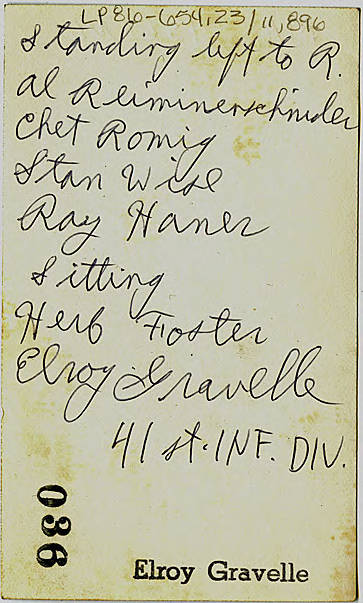 LP86-654.23/11,896
Standing left to R.
Al Reiminerschnider
Chet Romig
Stan Wise
Ray Haner
Sitting
Herb Foster
Elroy Gravelle
41 st. INF. DIV.
036
Elroy Gravelle